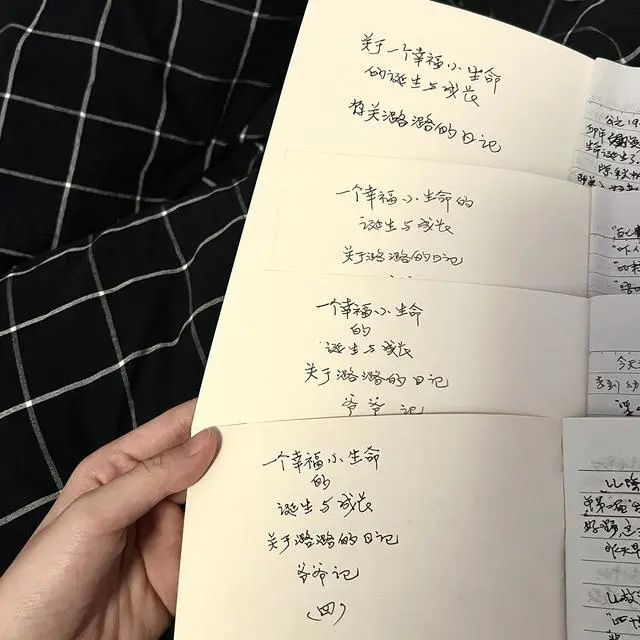 关于一个幸福小生命
的诞生与成长
有关潞潞的日记
一个幸福小生命的
诞生与成长
关于潞潞的日记
一个幸福小生命
的
诞生与成长
关于潞潞的日记
爷爷记
一个幸福小生命
的
诞生与成长
关于潞潞的日记
爷爷记
（四）
今天